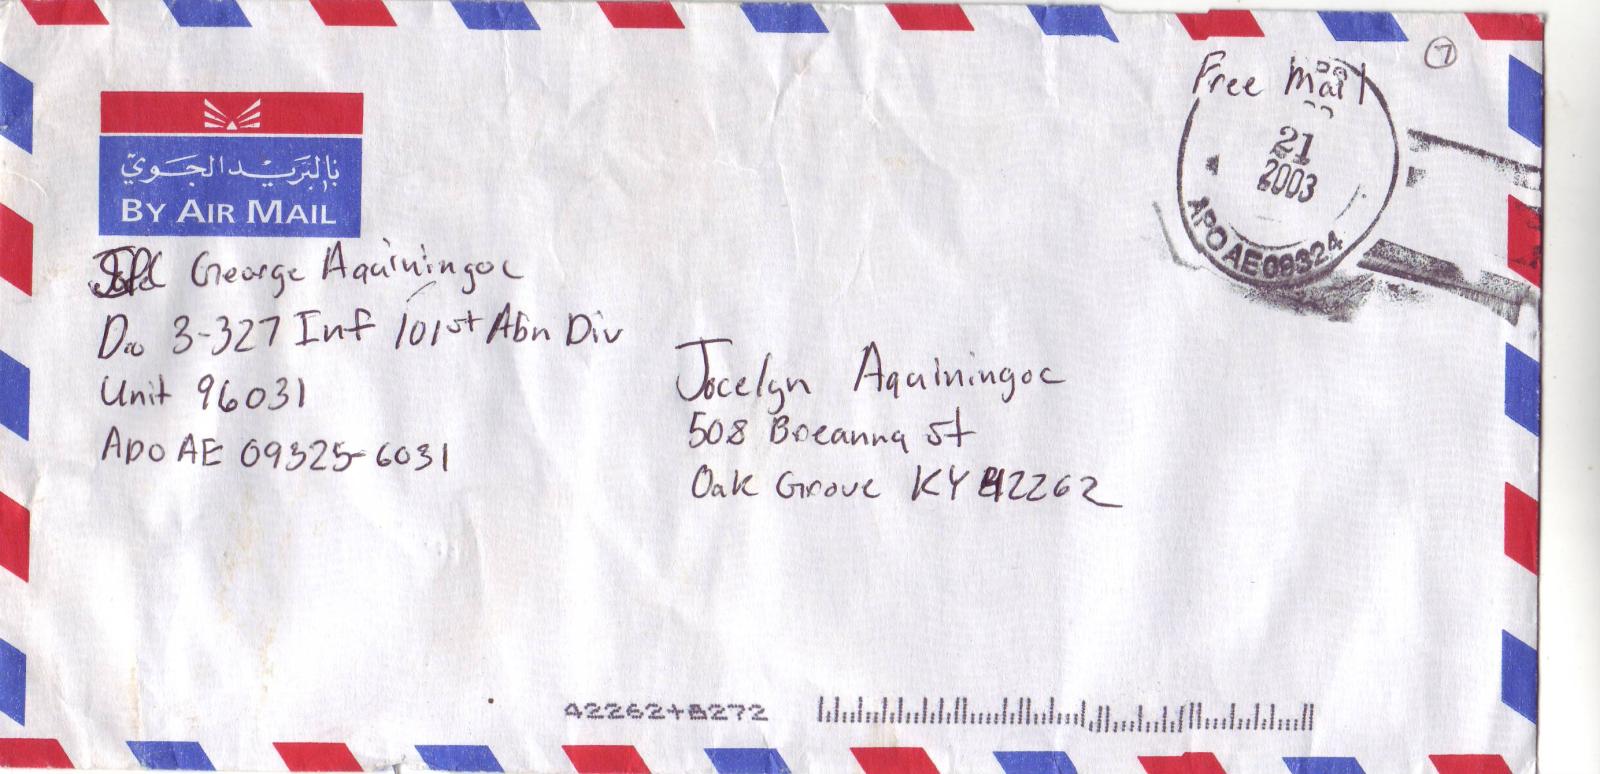 Free Mail
7
21
2003
APO AE 09324
بالبَريْد الجَويّ
BY AIR MAIL
George Aquiningoc
Do 3-327 Inf 101st Abn Div
Unit 96031
APO AE 09325-6031
Jocelyn Aquiningoc
508 Breanna St
Oak Grove KY 42262
42262+8272